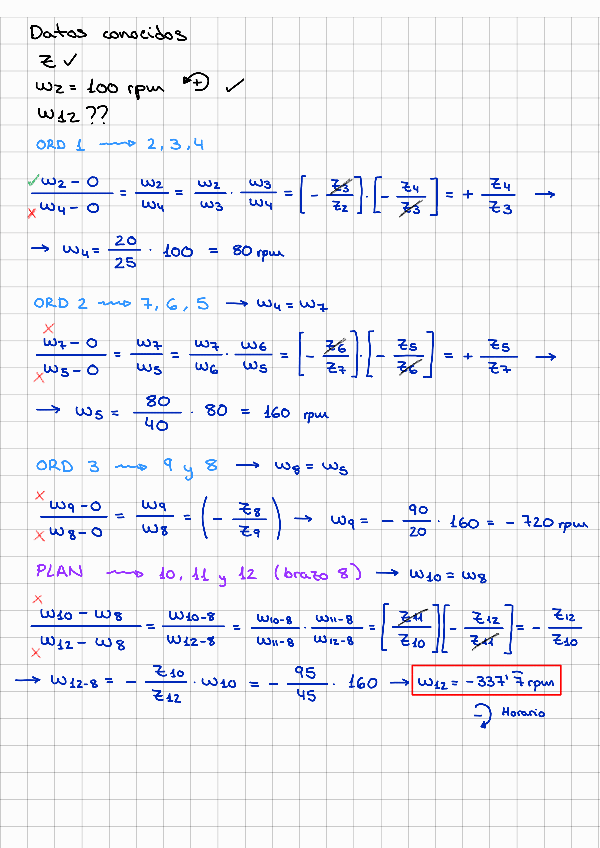 Datos conocidos
Z ✓
ω2 = 100 rpm ↶+ ✓
ω12 ??
ORD 1 ⟿ 2, 3, 4
✓ × (ω2 - 0)/(ω4 - 0) = ω2/ω4 = ω2/ω3 · ω3/ω4 = [- Z3/Z2] · [- Z4/Z3] = + Z4/Z3 →
→ ω4 = 20/25 · 100 = 80 rpm
ORD 2 ⟿ 7, 6, 5 → ω4 = ω7
× × (ω7 - 0)/(ω5 - 0) = ω7/ω5 = ω7/ω6 · ω6/ω5 = [- Z6/Z7] · [- Z5/Z6] = + Z5/Z7 →
→ ω5 = 80/40 · 80 = 160 rpm
ORD 3 ⟿ 9 y 8 → ω8 = ω5
× × (ω9 - 0)/(ω8 - 0) = ω9/ω8 = (- Z8/Z9) → ω9 = - 90/20 · 160 = - 720 rpm
PLAN ⟿ 10, 11 y 12 (brazo 8) → ω10 = ω8
× × (ω10 - ω8)/(ω12 - ω8) = ω10-8/ω12-8 = ω10-8/ω11-8 · ω11-8/ω12-8 = [Z11/Z10] [- Z12/Z11] = - Z12/Z10
→ ω12-8 = - Z10/Z12 · ω10 = - 95/45 · 160 → ω12 = - 337'7̅ rpm
- Horario